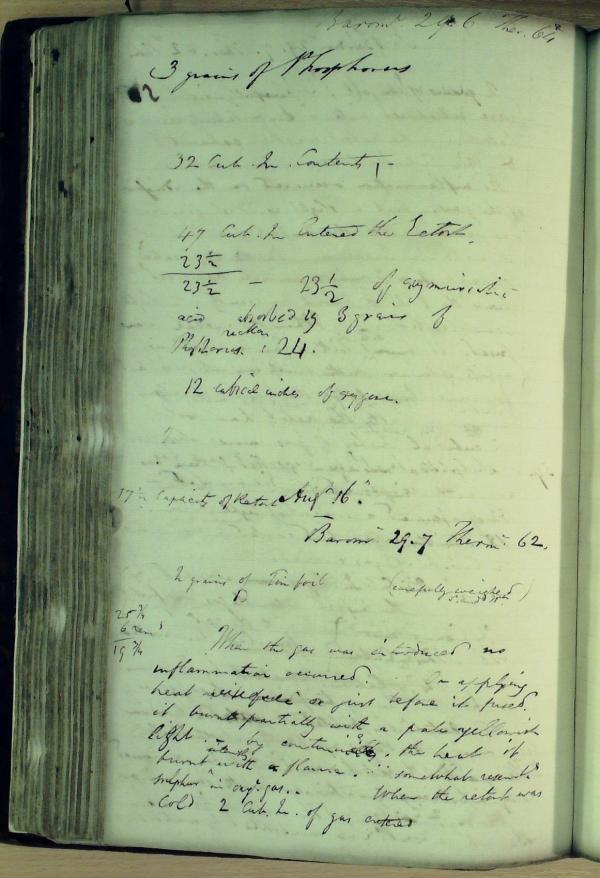 Barom.r 29.6 Ther. 64
3 grains of Phosphorus
32 Cub. In. Contents, -
47 Cub. In Entered the Retort.
23 1/2
23 1/2 - 23 1/2 of oxymuriatic
acid absorbed by 3 grains of
Phosphorus. rather : 24.
12 cubical inches of oxygene.
17 in Capacity of Retort Aug.t 16.
Barom.r 29.7 Therm.r 62.
2 grains of Tin foil (carefully weighed)
25 3/4
6
19 3/4
When the gas was introduced no
inflammation occurred. On applying
heat or just before it fused,
it burnt partially with a pale yellowish
light. by continuing the heat it
burnt with a flame. somewhat resembd
sulphur in oxy. gas. When the retort was
Cold 2 Cub. In. of gas entered